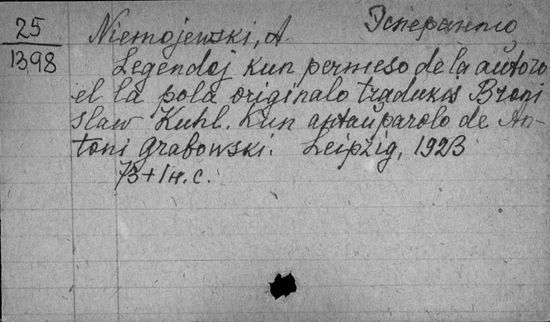 25
1398
Niemojewski, A. Эсперанто
Legendoj kun permeso de la aŭtoro
el la pola originalo tradukis Broni
slaw Kuhl. Kun antaŭparolo de An-
toni Grabowski. Leipzig, 1923
73+1н.с.